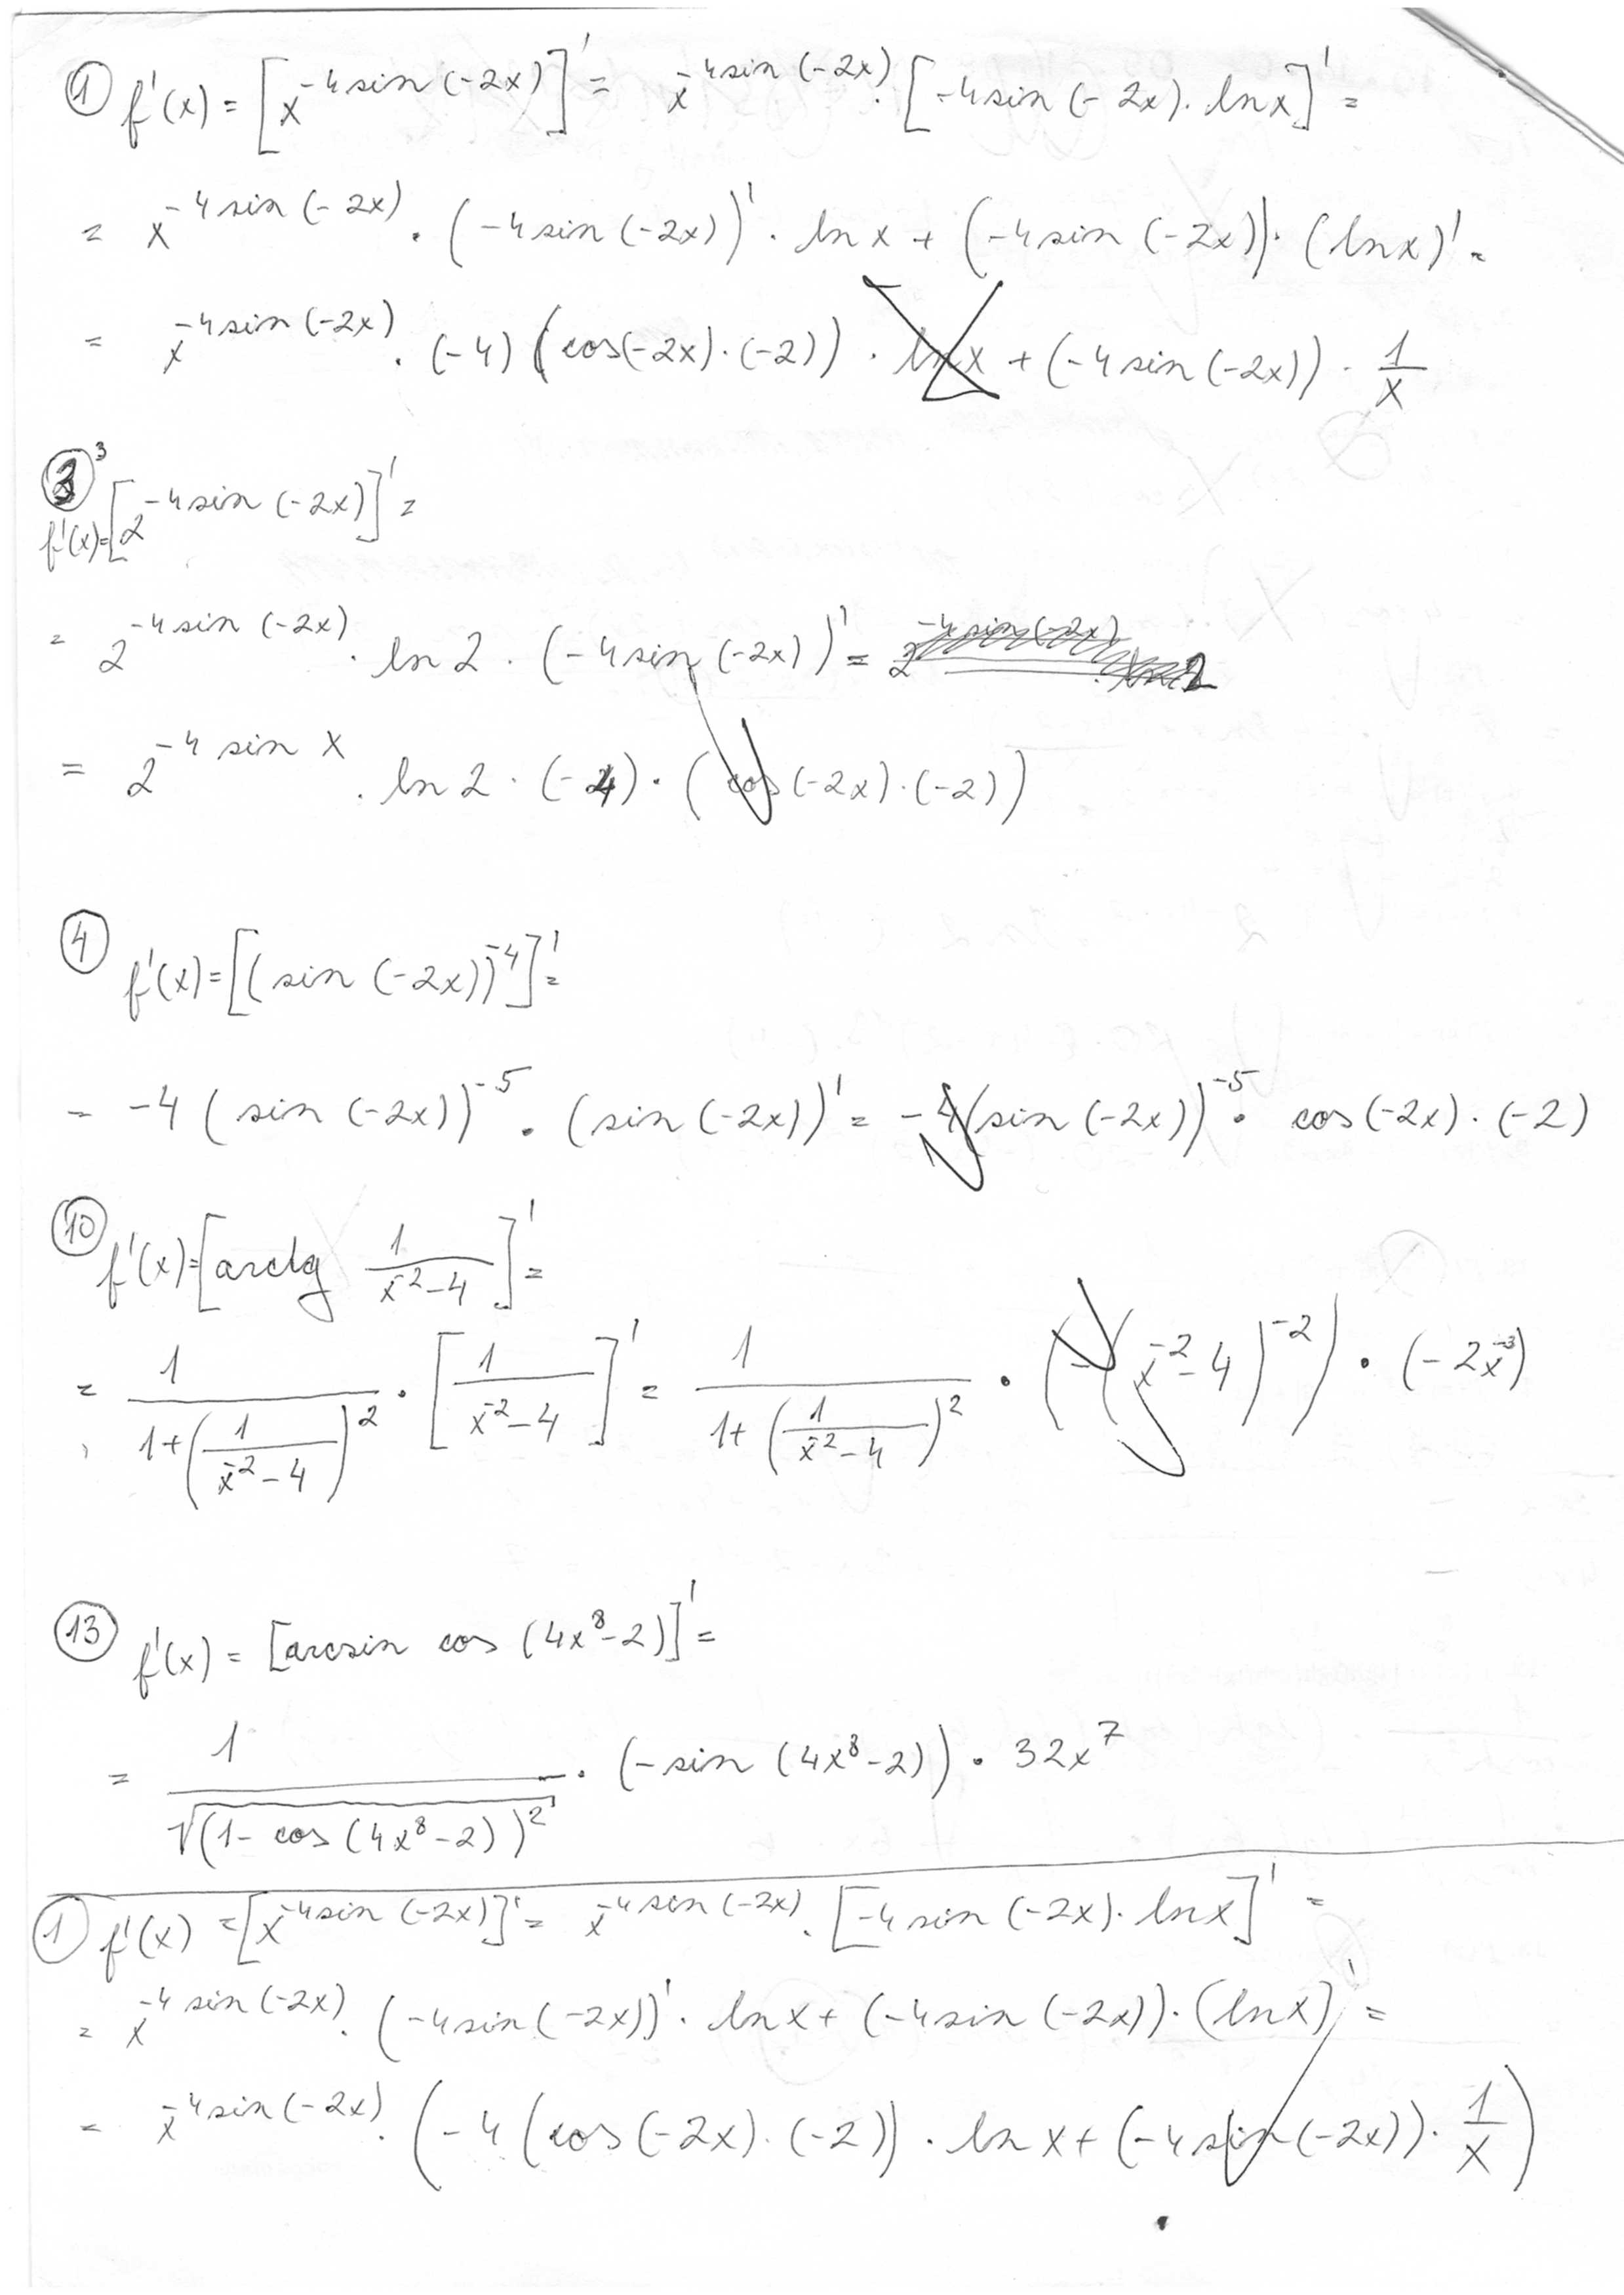 ① f'(x) = [x^{-4sin(-2x)}]' = x^{-4sin(-2x)} · [-4sin(-2x) · ln x]' =
= x^{-4sin(-2x)} · (-4sin(-2x))' · ln x + (-4sin(-2x)) · (ln x)' =
= x^{-4sin(-2x)} · (-4) (cos(-2x) · (-2)) · ln x + (-4sin(-2x)) · 1/x
③ 3
f'(x) = [2^{-4sin(-2x)}]' =
= 2^{-4sin(-2x)} · ln 2 · (-4sin(-2x))' = 2^{-4sin(-2x)}
= 2^{-4 sin x} · ln 2 · (-4) · (cos(-2x) · (-2))
④ f'(x) = [(sin(-2x))^{-4}]' =
= -4 (sin(-2x))^{-5} · (sin(-2x))' = -4 (sin(-2x))^{-5} · cos(-2x) · (-2)
⑩ f'(x) = [arctg 1/(x^{-2}-4)]' =
= 1/(1+(1/(x^{-2}-4))^2) · [1/(x^{-2}-4)]' = 1/(1+(1/(x^{-2}-4))^2) · (-(x^{-2}-4)^{-2}) · (-2x^{-3})
⑬ f'(x) = [arcsin cos (4x^8-2)]' =
= 1/√((1-cos(4x^8-2))^2) · (-sin(4x^8-2)) · 32x^7
① f'(x) = [x^{-4sin(-2x)}]' = x^{-4sin(-2x)} · [-4sin(-2x) · ln x]' =
= x^{-4sin(-2x)} · (-4sin(-2x))' · ln x + (-4sin(-2x)) · (ln x)' =
= x^{-4sin(-2x)} · (-4 (cos(-2x) · (-2)) · ln x + (-4sin(-2x)) · 1/x)